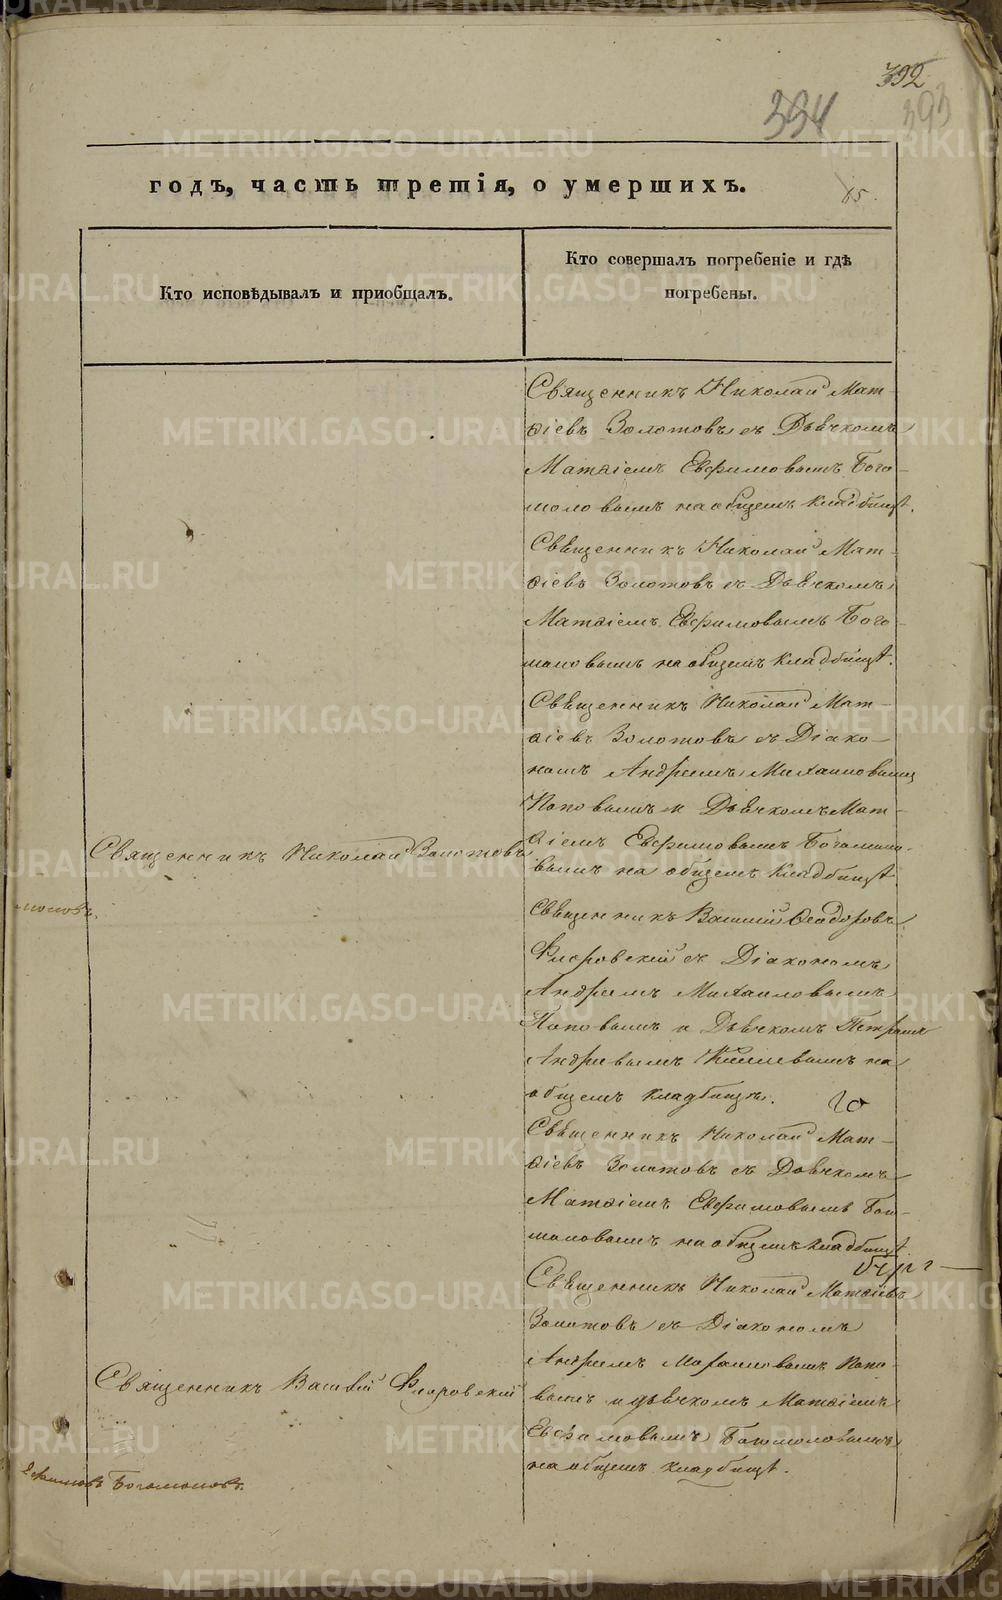 392
394
393
годъ, часть третія, о умершихъ.
85.
Кто исповѣдывалъ и приобщалъ.
Кто совершалъ погребеніе и гдѣ
погребены.
Священникъ Николай Мат-
ѳіевъ Золотовъ съ Дьячкомъ
Матѳіемъ Евфимовымъ Бого-
моловымъ на общемъ кладбищѣ.
Священникъ Николай Мат-
ѳіевъ Золотовъ съ Дьячкомъ
Матѳіемъ Евфимовымъ Бого-
моловымъ на общемъ кладбищѣ.
Священникъ Николай Мат-
ѳіевъ Золотовъ съ Діако-
номъ Андреемъ Михаиловымъ
Поповымъ и Дьячкомъ Мат-
ѳіемъ Евфимовымъ Богомоло-
вымъ на общемъ кладбищѣ
Священникъ Николай Золотовъ
моловъ.
Священникъ Василій Ѳеодоровъ
Флеровскій съ Діакономъ
Андреемъ Михаиловымъ
Поповымъ и Дьячкомъ Петромъ
Андреевымъ на
общемъ кладбищѣ.
Священникъ Николай Мат-
ѳіевъ Золотовъ съ Дьячкомъ
Матѳіемъ Евфимовымъ Бого-
моловымъ на общемъ кладбищѣ
Священникъ Николай Матѳіевъ
Золотовъ съ Діакономъ
Андреемъ Михаиловымъ Попо-
вымъ и дьячкомъ Матѳіемъ
Евфимовымъ Богомоловымъ
на общемъ кладбищѣ.
Священникъ Василій Флеровскій
Ефимовъ Богомоловъ.
METRIKI.GASO-URAL.RU